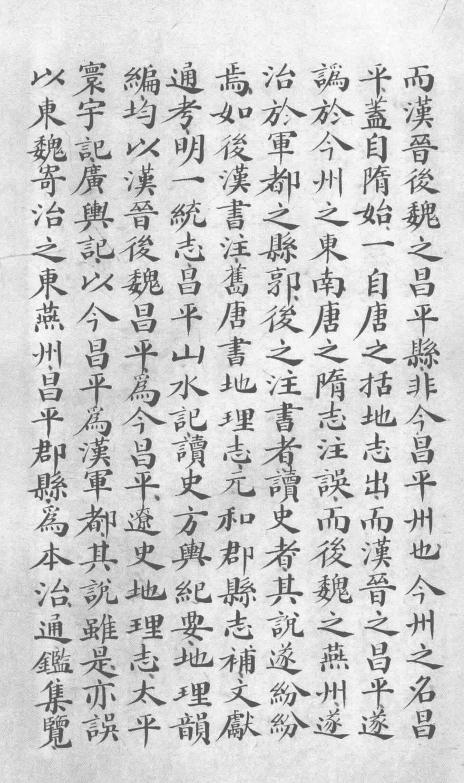 而漢晉後魏之昌平縣非今昌平州也今州之名昌
平蓋自隋始一自唐之括地志出而漢晉之昌平遂
譌於今州之東南唐之隋志注誤而後魏之燕州遂
治於軍都之縣郭後之注書者讀史者其說遂紛紛
焉如後漢書注舊唐書地理志元和郡縣志補文獻
通考明一統志昌平山水記讀史方輿紀要地理韻
編均以漢晉後魏昌平爲今昌平遼史地理志太平
寰宇記廣輿記以今昌平爲漢軍都其說雖是亦誤
以東魏寄治之東燕州昌平郡縣爲本治通鑑集覽